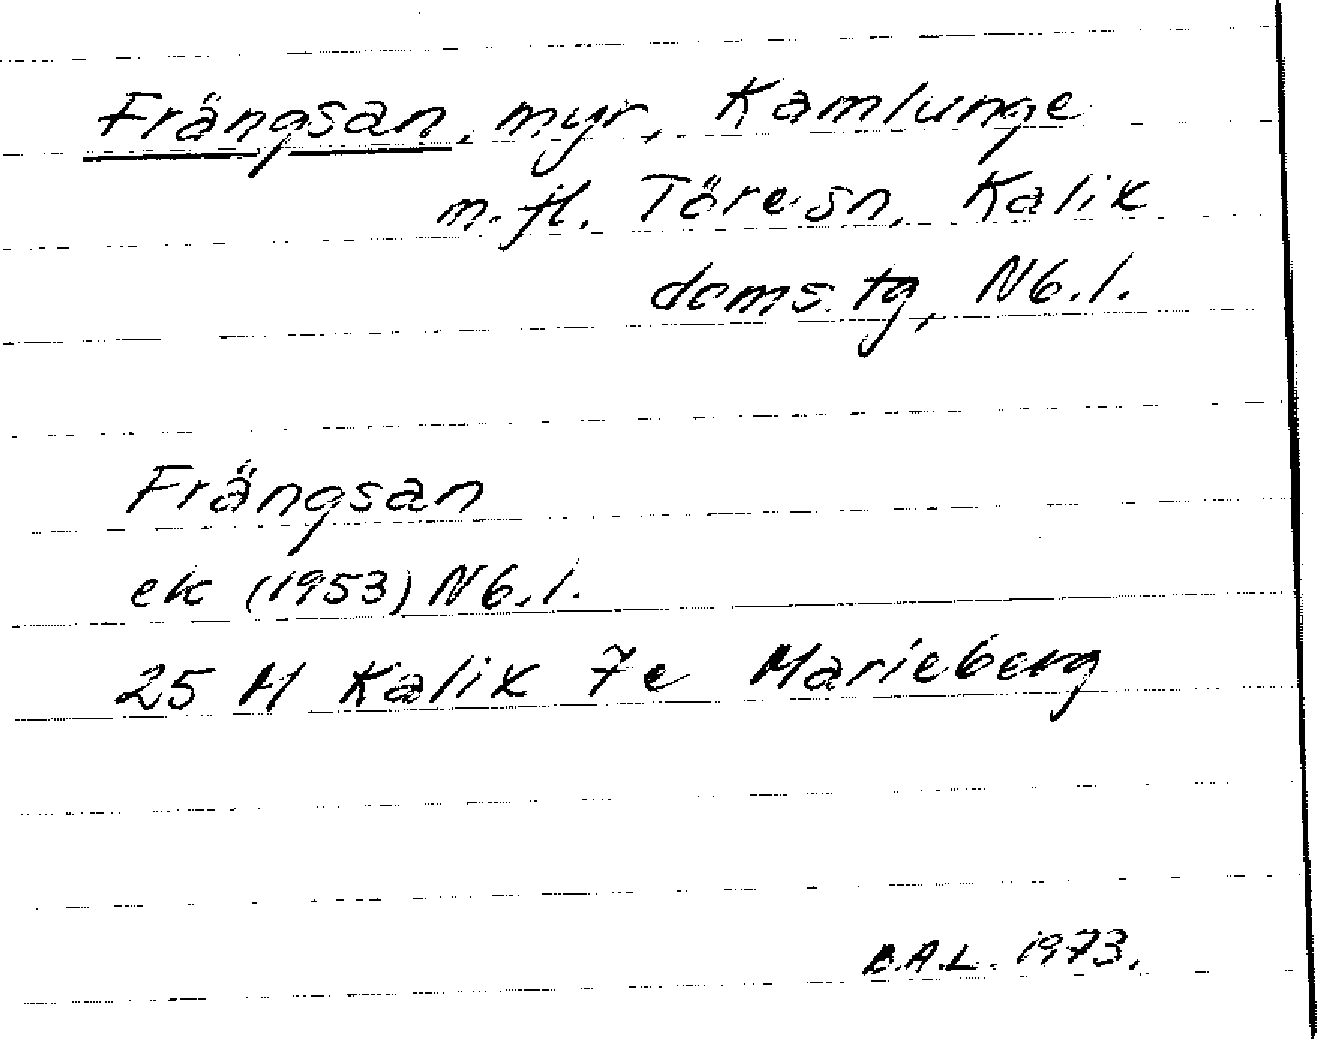 Frängsan, myr, Kamlunge
m.fl. Töre sn, Kalix
doms. tg, Nb.l.
Frängsan
ek (1953) Nb.l.
25 M Kalix 7e Marieberg
B.A.L. 1973.